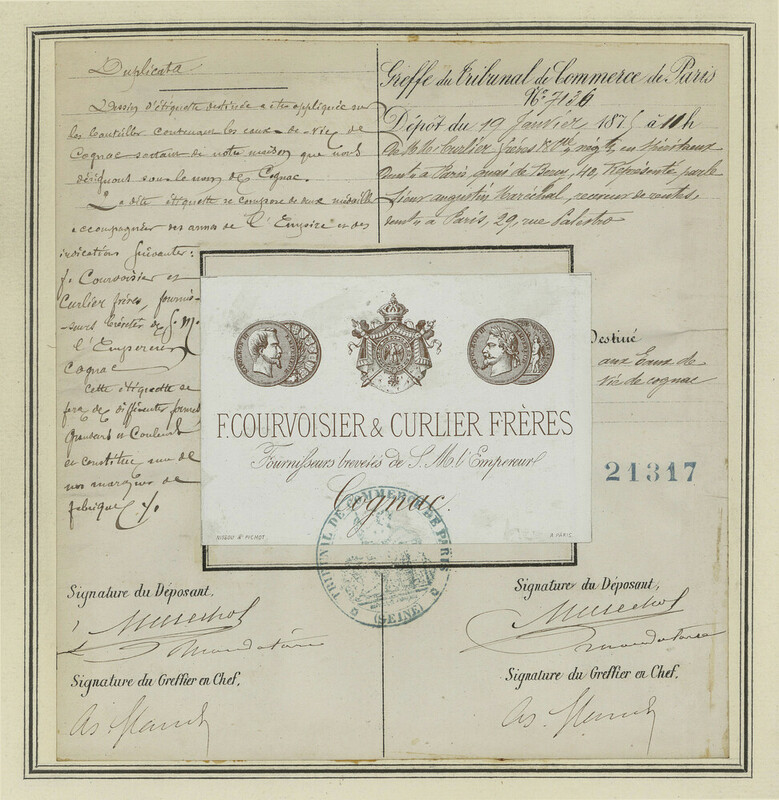 Duplicata
Dessin d'étiquette destinée a être appliquée sur
les bouteilles contenant les eaux-de-vie de
Cognac sortant de notre maison que nous
désignons sous le nom de Cognac.
La dite étiquette se compose de deux médailles
accompagnées des armes de l'Empire et des
indications suivantes:
f. Courvoisier et
Curlier frères, fournis-
seurs brévetés de S. M.
l'Empereur
Cognac
Cette étiquette se
fera de différentes formes
grandeurs et Couleurs
et constitue une de
nos marques de
fabrique
Greffe du Tribunal de Commerce de Paris
No 7136
Dépôt du 19 Janvier 1875 à 11h
Curlier frères négts en Spiritueux
demt à Paris quai de Bercy, 40, Représentés par le
Sieur augustin Maréchal, receveur de rentes,
demt à Paris, 29, rue Palestro
Destiné
aux Eaux de
Vie de cognac
21317
F. COURVOISIER & CURLIER FRÈRES
Fournisseurs brevetés de S. M. l'Empereur
Cognac.
A PARIS
TRIBUNAL DE COMMERCE DE PARIS
(SEINE)
Signature du Déposant,
Marechal
mandataire
Signature du Greffier en Chef,
Signature du Déposant,
Marechal
mandataire
Signature du Greffier en Chef,